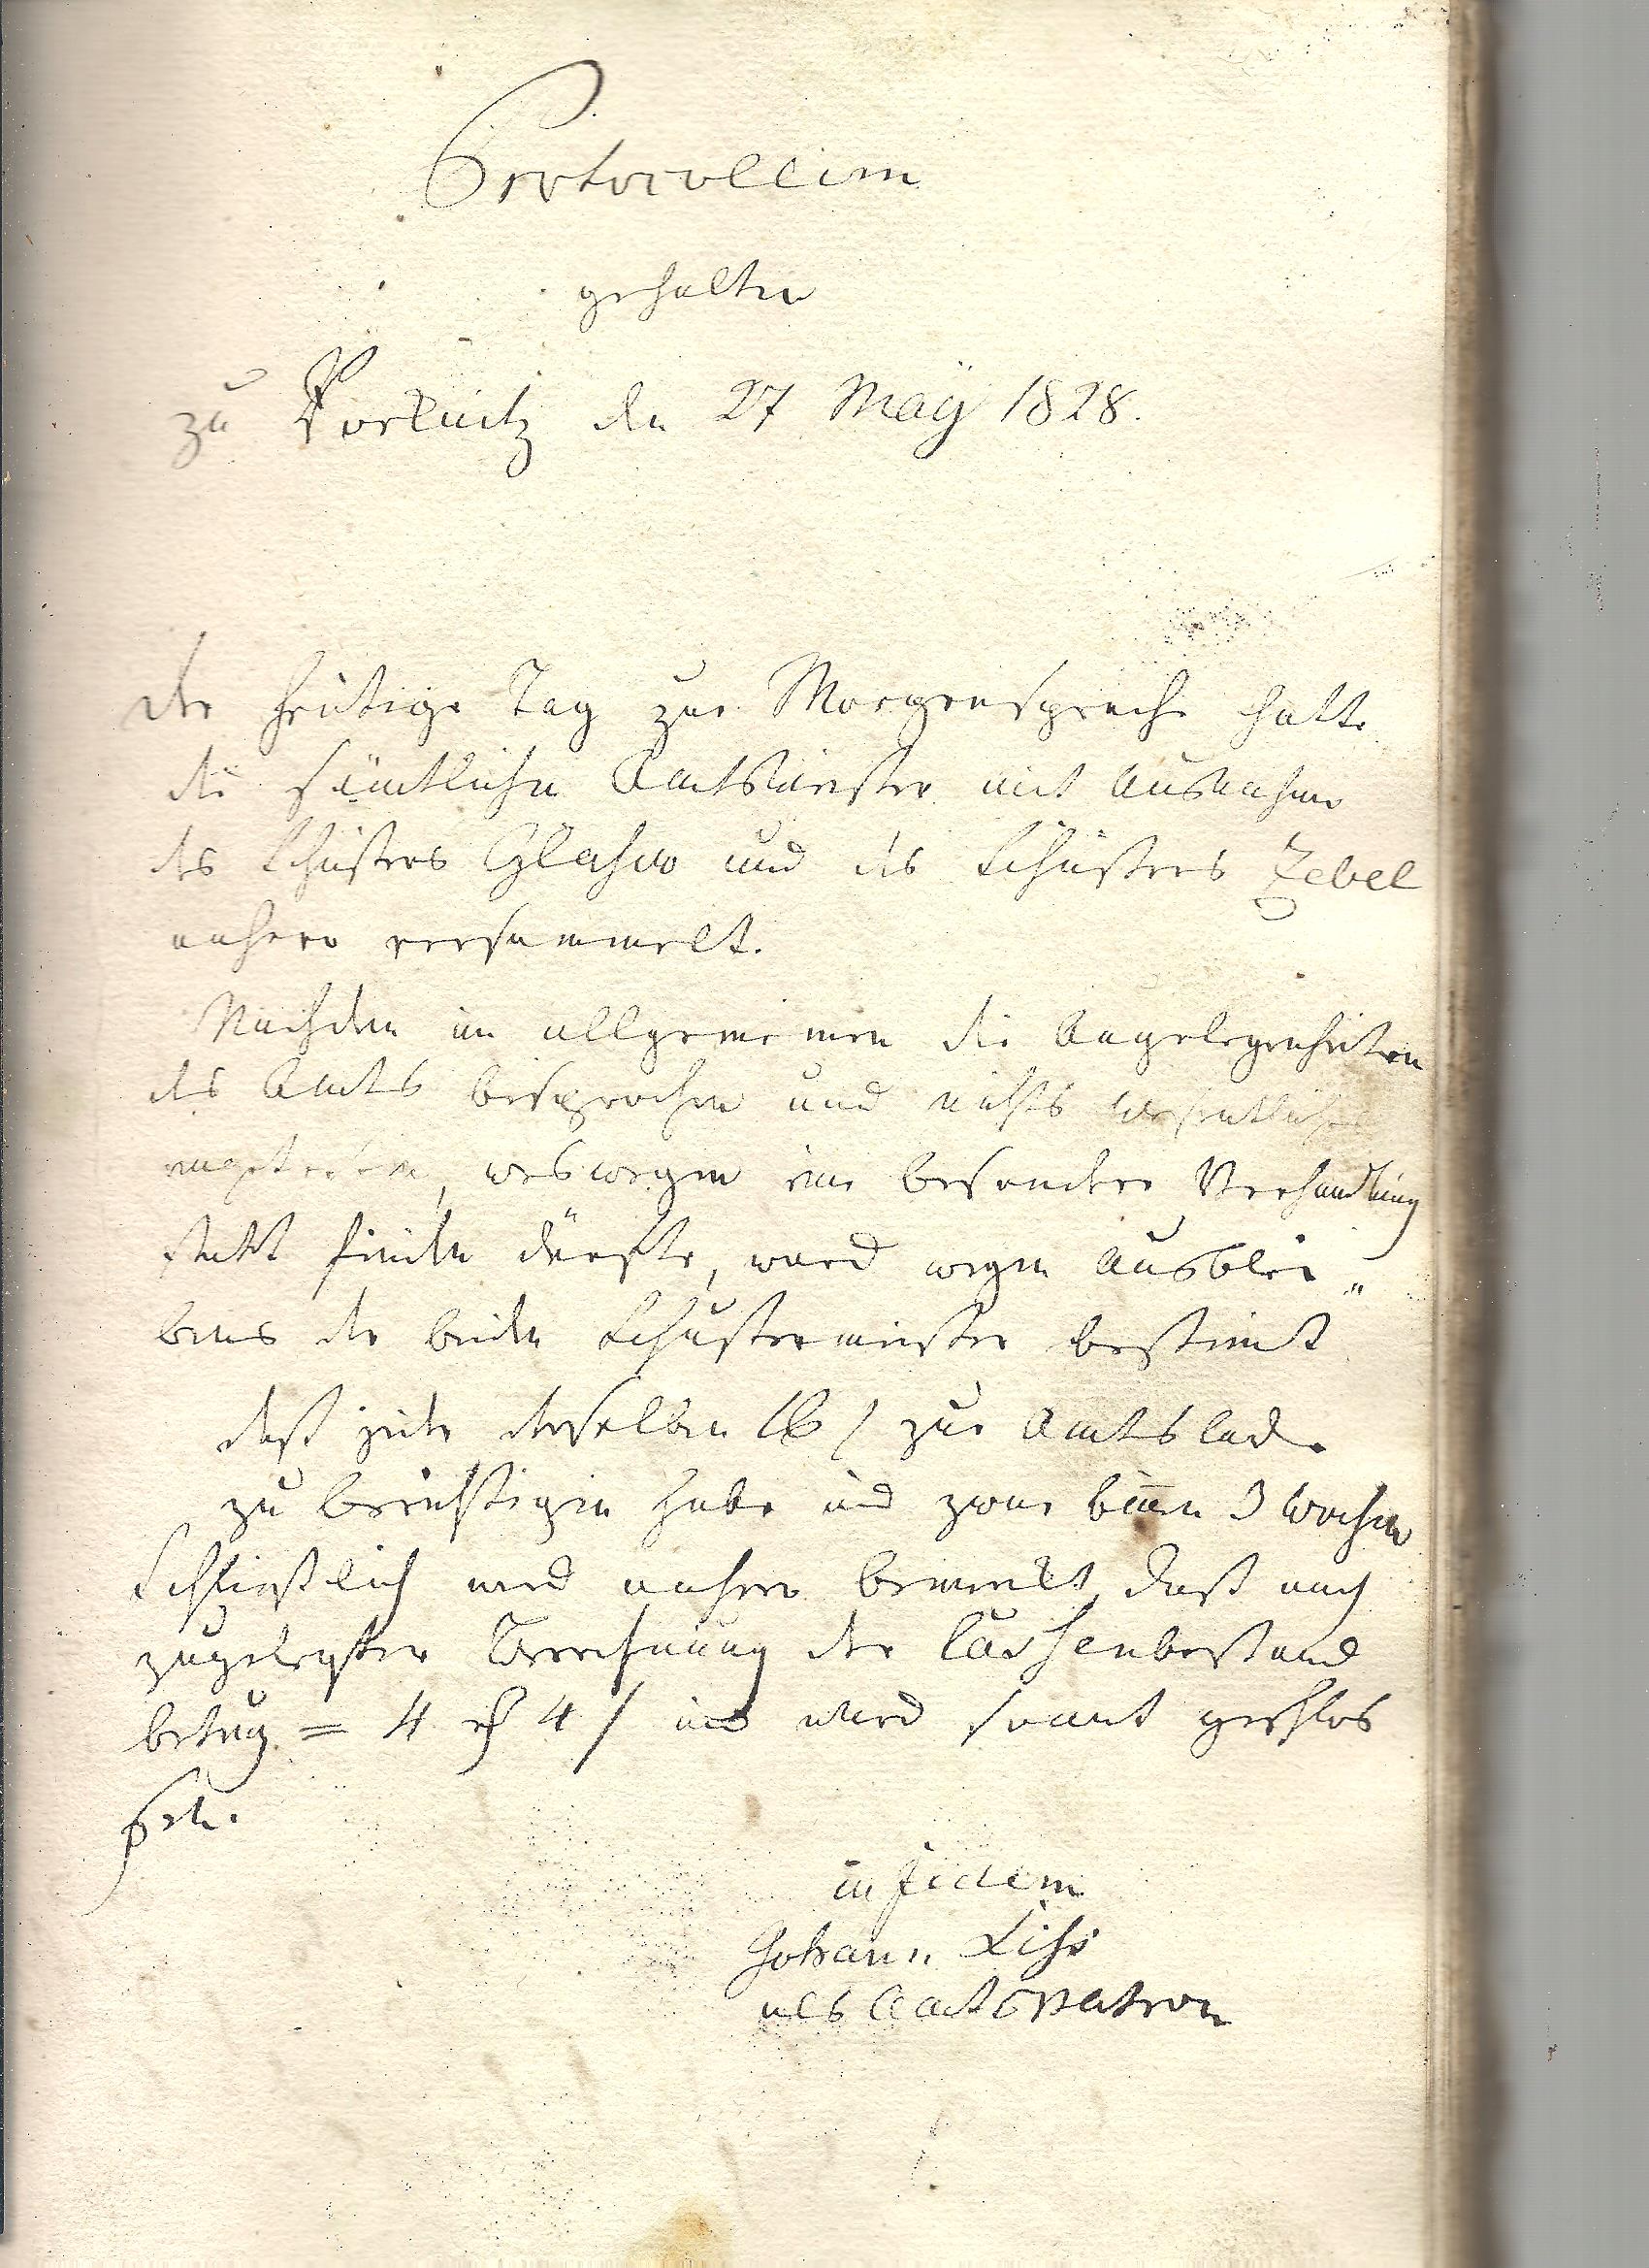 Protocollum
gehalten
zu den 27 Maÿ 1828.
Der heutige Tag zur Morgensprache hatte
die sämtlichen Amtsmeister mit Ausnahme
des Schusters Glashow und des Schusters Zebel
anhero versammelt.
Nachdem im allgemeinen die Angelegenheiten
des Amts besprochen und nichts wesentliches
eingetreten, weswegen eine besondere Verhandlung
statt finden dürfte, ward wegen Ausblei„
bens der beiden Schustermeister bestimt
daß jeder derselben 16 ß zur Amtslade
zu berichtigen habe und zwar binnen 3 Wochen
Schließlich wird anhero bemerkt, daß nach
zugelegter Berechnung der Cassenbestand
betrug = 4 rthl 4 ß und ward somit geschlos
sen.
in fidem
Johann
als Amtspatron